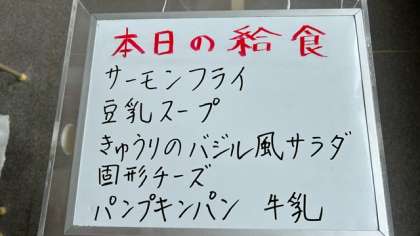 本日の給食
サーモンフライ
豆乳スープ
きゅうりのバジル風サラダ
固形チーズ
パンプキンパン 牛乳